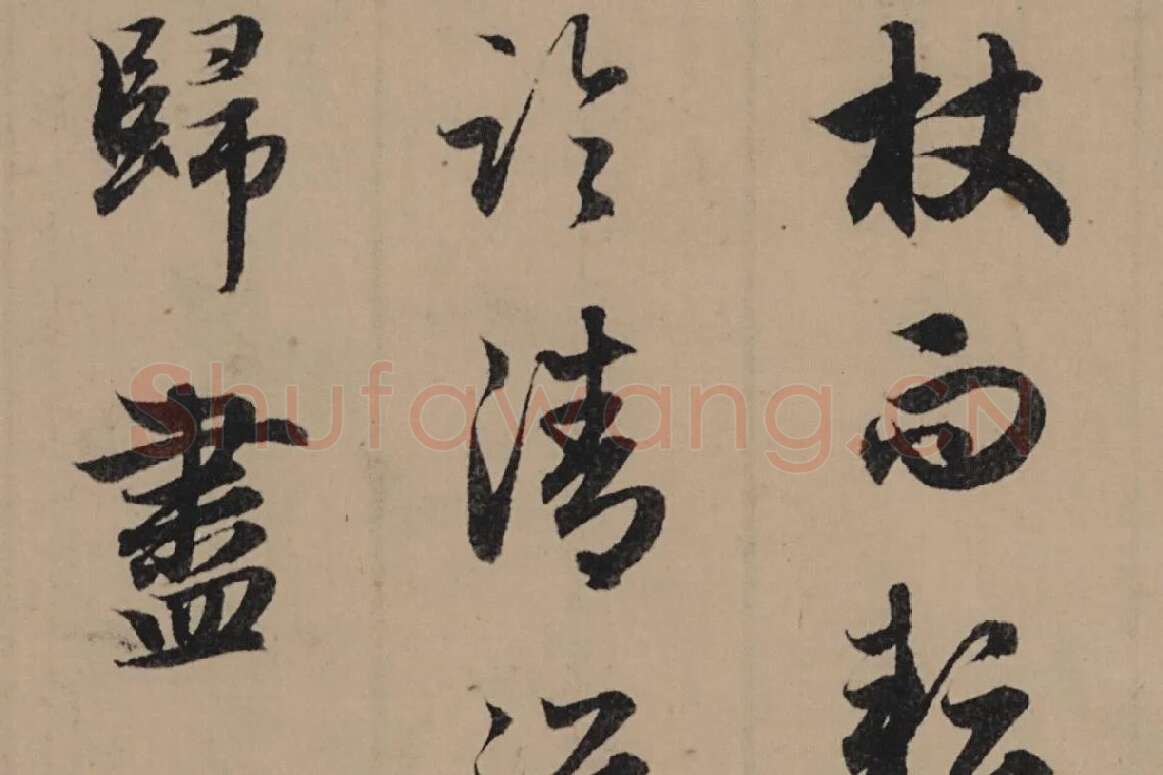 杖而耘
於清
歸盡
Shufawang.CN